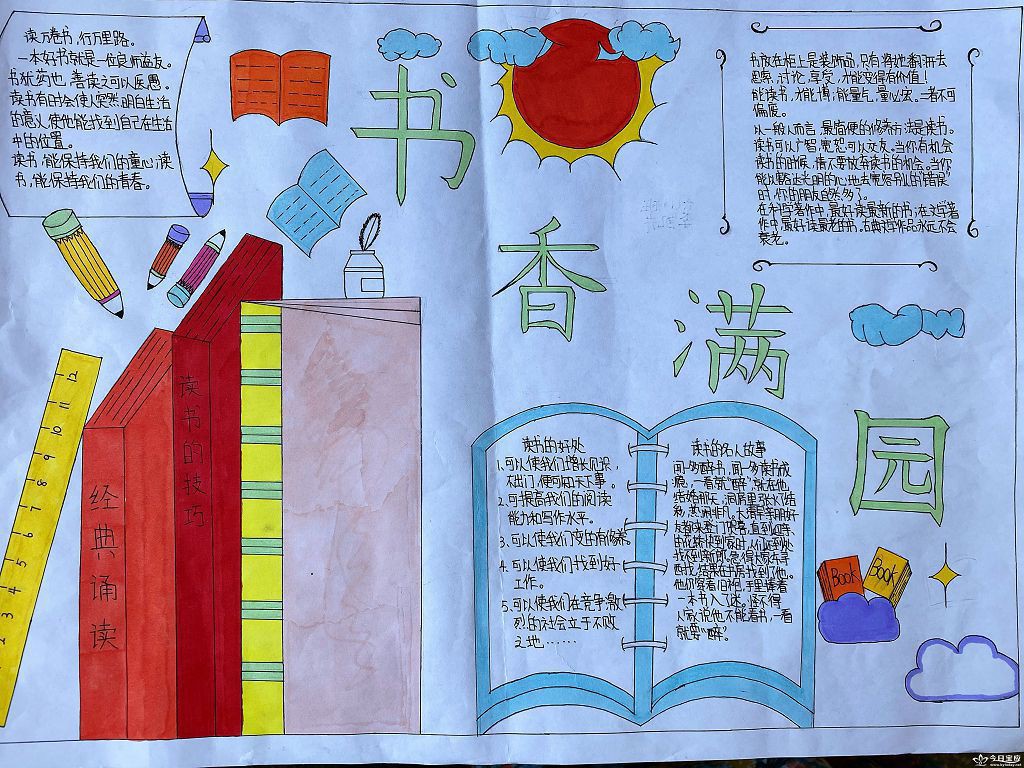 读万卷书，行万里路。
一本好书就是一位良师益友。
书犹药也，善读之可以医愚。
读书有时会使人突然明白生活
的意义，使他能找到自己在生活
中的位置。
读书，能保持我们的童心；读
书，能保持我们的青春。
书
香
满
园
书放在柜上是装饰品，只有将她翻开去
思索，讨论，享受，才能变得有价值！
能读书，才能博；能量气，量必宏。二者不可
偏废。
以一般人而言，最简便的修养方法是读书。
读书可以广智，宽恕可以交友。当你有机会
读书的时候，请不要放弃读书的机会。当你
能以豁达光明的心地去宽容别人的“错误”
时，你的朋友自然多了。
在科学著作中，最好读最新的书；在文学著
作中，最好读最老的书。古典文学作品永远不会
衰老。
经典诵读
读书的技巧
12
11
10
9
8
7
6
5
4
3
2
读书的好处
1、可以使我们增长见识，
不出门，便可知天下事。
2、可提高我们的阅读
能力和写作水平。
3、可以使我们变的有修养。
4、可以使我们找到好
工作。
5、可以使我们在竞争激
烈的社会立于不败
之地……
读书的名人故事
闻一多醉书，闻一多读书成
瘾，一看就“醉”，就在他
结婚那天，洞房里张灯结
彩，热闹非凡。大清早亲朋好
友都来登门贺喜，直到迎亲
的花轿快到家时，人们还到处
找不到新郎。急得大家东寻
西找，结果在书房找到了他。
他仍穿着旧袍，手里捧着
一本书入了迷。怪不得
人家说他不能看书，一看
就要“醉”。
Book
Book
今日宝应